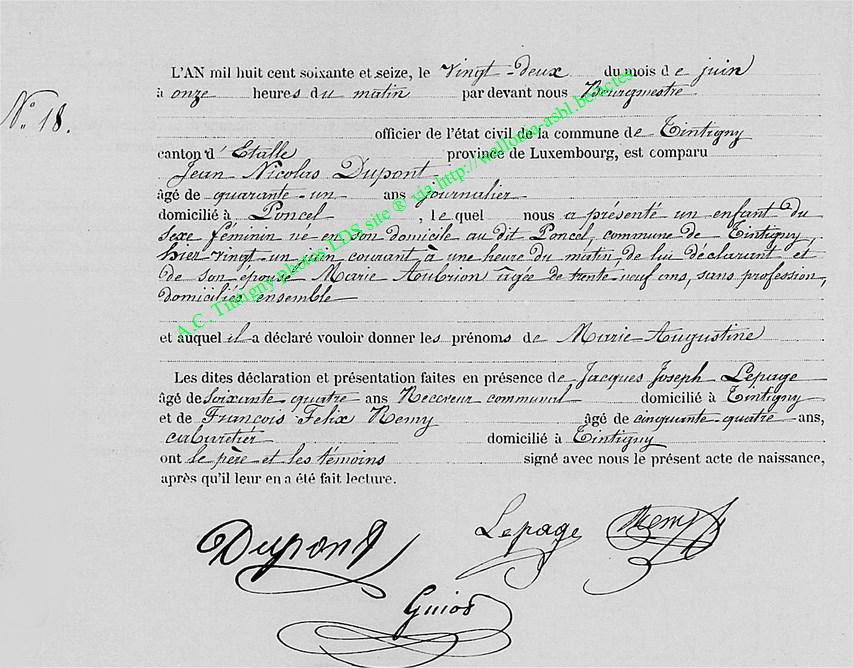 N° 18.
L'AN mil huit cent soixante et seize, le vingt-deux du mois de juin
à onze heures du matin par devant nous Bourgmestre
officier de l'état civil de la commune de Tintigny
canton d'Etalle province de Luxembourg, est comparu
Jean Nicolas Dupont
âgé de quarante-un ans journalier
domicilié à Poncel ; lequel nous a présenté un enfant du
sexe féminin né en son domicile au dit Poncel, commune de Tintigny,
hier vingt-un juin courant à une heure du matin de lui déclarant et
de son épouse Marie Aubrion âgée de trente-neuf ans, sans profession,
domiciliés ensemble
et auquel il a déclaré vouloir donner les prénoms de Marie Augustine
Les dites déclaration et présentation faites en présence de Jacques Joseph Lepage
âgé de soixante quatre ans Receveur communal domicilié à Tintigny
et de François Felix Remy âgé de cinquante quatre ans,
cabaretier domicilié à Tintigny
ont le père et les témoins signé avec nous le présent acte de naissance,
après qu'il leur en a été fait lecture.
Dupont
Lepage
Remy
Guiot
A.C. Tintigny photos LDS site ® via http://wallonia-asbl.be/actes